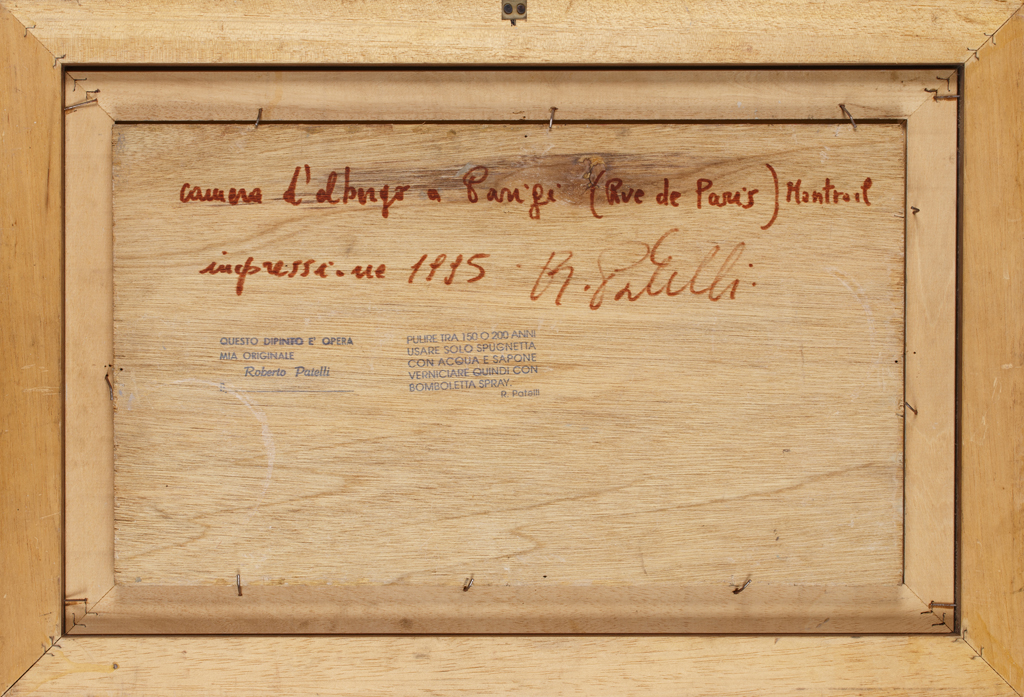 camera d'albergo a Parigi (Rue de Paris) Montroil
impressione 1995 R. Patelli.
QUESTO DIPINTO E' OPERA
MIA ORIGINALE
Roberto Patelli
PULIRE TRA 150 O 200 ANNI
USARE SOLO SPUGNETTA
CON ACQUA E SAPONE
VERNICIARE QUINDI CON
BOMBOLETTA SPRAY.-
R. Patelli